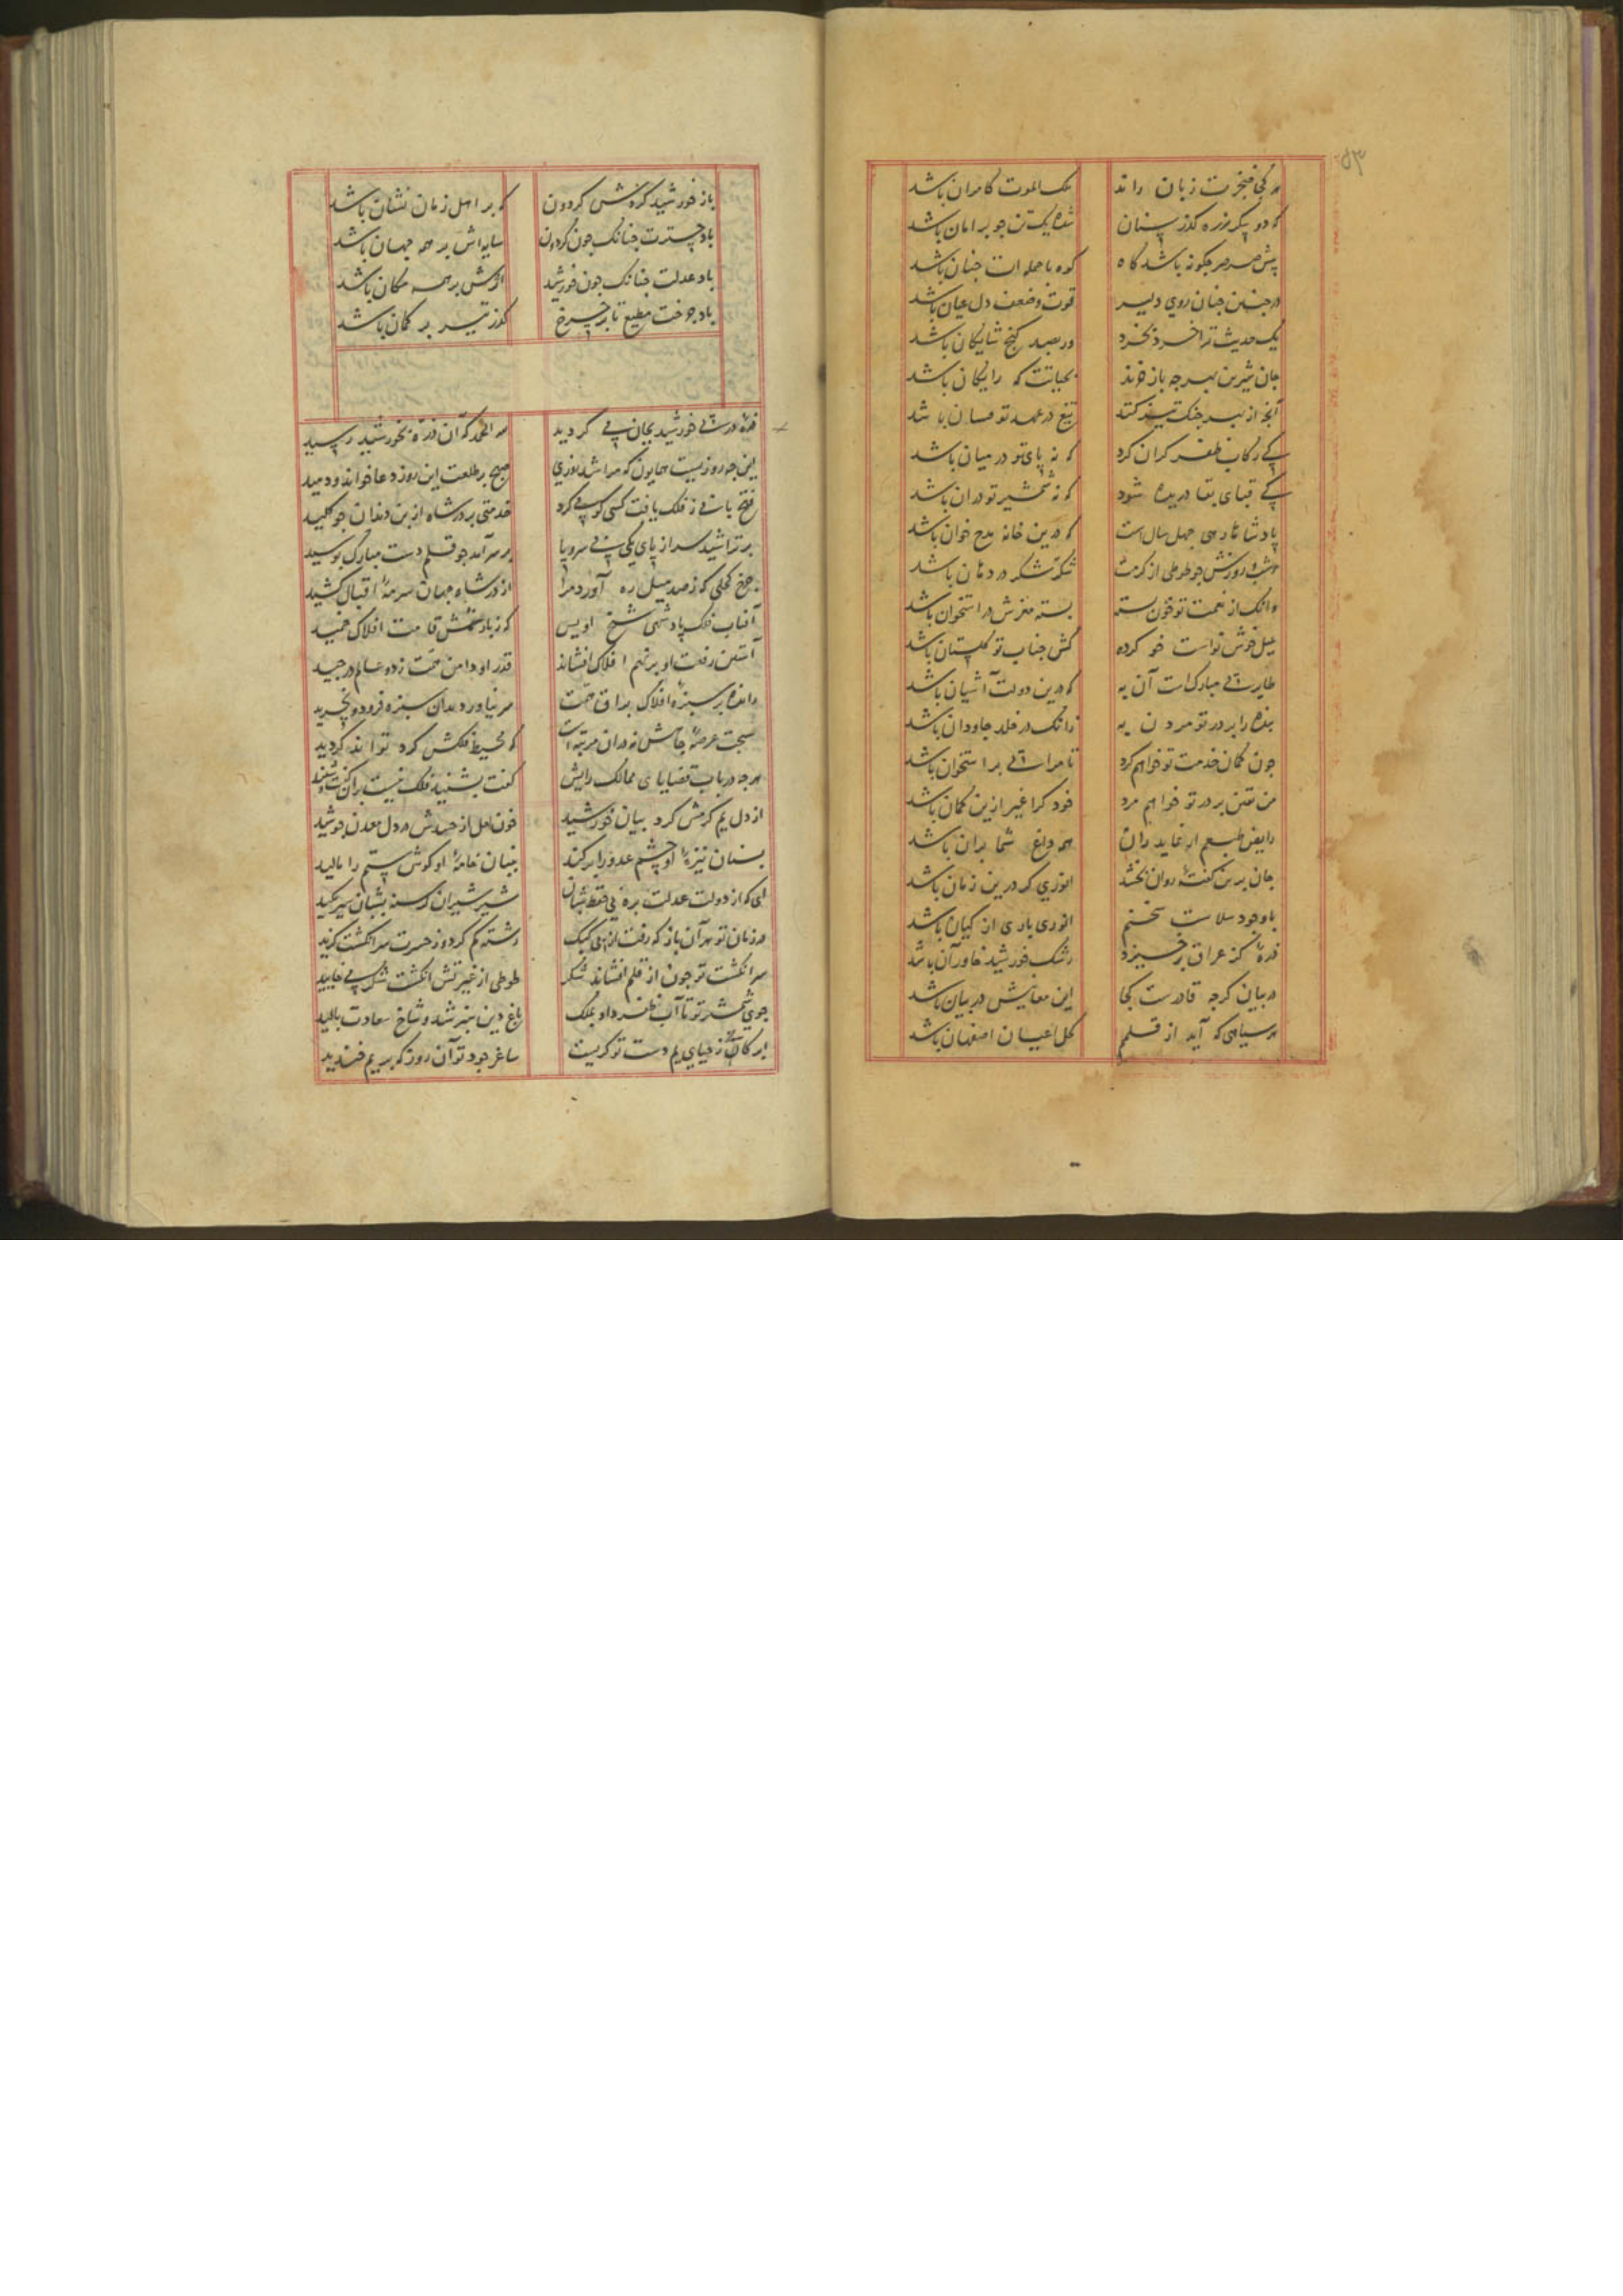 ۵۳
هر کجا خنجرت زبان راند ملک الموت کامران باشد
که دو پیکر زره کذر سنان شده یک تن جو بر امان باشد
پیش صرصر جکونه باشد کاه کوه با حمله ات جنان باشد
در جنین جنان روی دلیر قوت و ضعف دل عیان باشد
یک حدیث ترا خرد بخرد ور بصد کنج شایکان باشد
جان شیرین بهر جه باز خرند بحیاتت که رایکان باشد
آنجه از بهر جنک تیز کند تیغ در عهد تو فسان باشد
کی رکاب ظفر کران کرد که نه پای تو در میان باشد
کی قبای بقا دریده شود که نه شمشیر تو دران باشد
پادشاها رهی جهل سال است که درین خانه مدح خوان باشد
شب و روزش جو طوطی از کرمت شکر شکر در دهان باشد
وانک از نعمت تو خون بسته بسته مغزش در استخوان باشد
بلبل خوش نواست خو کرده کش جناب تو کلستان باشد
طایر مبارک است آن به که درین دولت آشیان باشد
بنده را بر در تو مردن به زانک در خلد جاودان باشد
جون کمان خدمت تو خواهم کرد تا مرا بر استخوان باشد
من یقین بر در تو خواهم مرد خود کرا غیر ازین کمان باشد
رایض طبعم ار نماید ران هم داغ شما بران باشد
جان برین کفته روان بخشد انوری کر درین زمان باشد
با وجود سلاست سخنم انوری باری از کیان باشد
ذره کز عراق برخیزد رشک خورشید خاوران باشد
در بیان کرجه قادرست کجا این معانیش در بیان باشد
هر سیاهی که آید از قلمم کحل اعیان اصفهان باشد
باز خورشید کره ش کردون که بر اهل زمان نشان باشد
باد چترت جنانک جون کردون سایه اش بر همه جهان باشد
باد عدلت جنانک جون خورشید اثرش بر همه مکان باشد
باد جوخت مطیع تا بر جرخ کذر تیر بر کمان باشد
ذره در خورشید بجان می کردید لله الحمد که آن ذره بخورشید رسید
این جه روزیست همایون که مرا شد روزی صبح بر طلعت این روز دعا خواند و دمید
فتح باب ز فلک یافت کسی کو کرد خدمتی بر در شاه از بن دندان جو کلید
بر تراشید سر از پای یکی بی سر و پا بر سر آمد جو قلم دست مبارک بوسید
جرخ کحلی که ز صد میل ره آورد مرا از در شاه جهان سرمه اقبال کشید
آفتاب فلک پادشهی شیخ اویس که ز بار نعمش قامت افلاک خمید
آستین رفعت او بر نهم افلاک افشاند قدر او دامن همت ز ده عالم درجید
رانده بر سبزه افلاک براق همت سر نیاورد بدان سبزه فرود و نجرید
سجت عرصه جاهش نه دران مرتبه است که محیط فلکش کرد تواند کردید
هر جه در باب قضایای ممالک رایش کفت بشنید فلک نیست بران کفت و شنید
از دل یم کرمش کرد بیان خورشید خون لعل از حسدش در دل معدن جوشید
بسنان نیزه او چشم عدو را برکند ببنان خامه او کوش ستم را مالید
ای که از دولت عدلت بره فی قحط شبان شیر شیران کرسنه بشبان شیر مکید
در زمان تو هر آن باز که رفت از پی کبک رشته کم کرد و ز حسرت سر انکشت کزید
سر انکشت تو جون از قلم افشاند شکر طوطی از غیرتش انکشت شکر می خایید
جوی شمشیر تو تا آب ظفر داد بملک باغ دین سبز شد و شاخ سعادت بالید
ابر کان ز حیای یم دست تو کریست ساغر جود تو آن روز که بر یم خندید